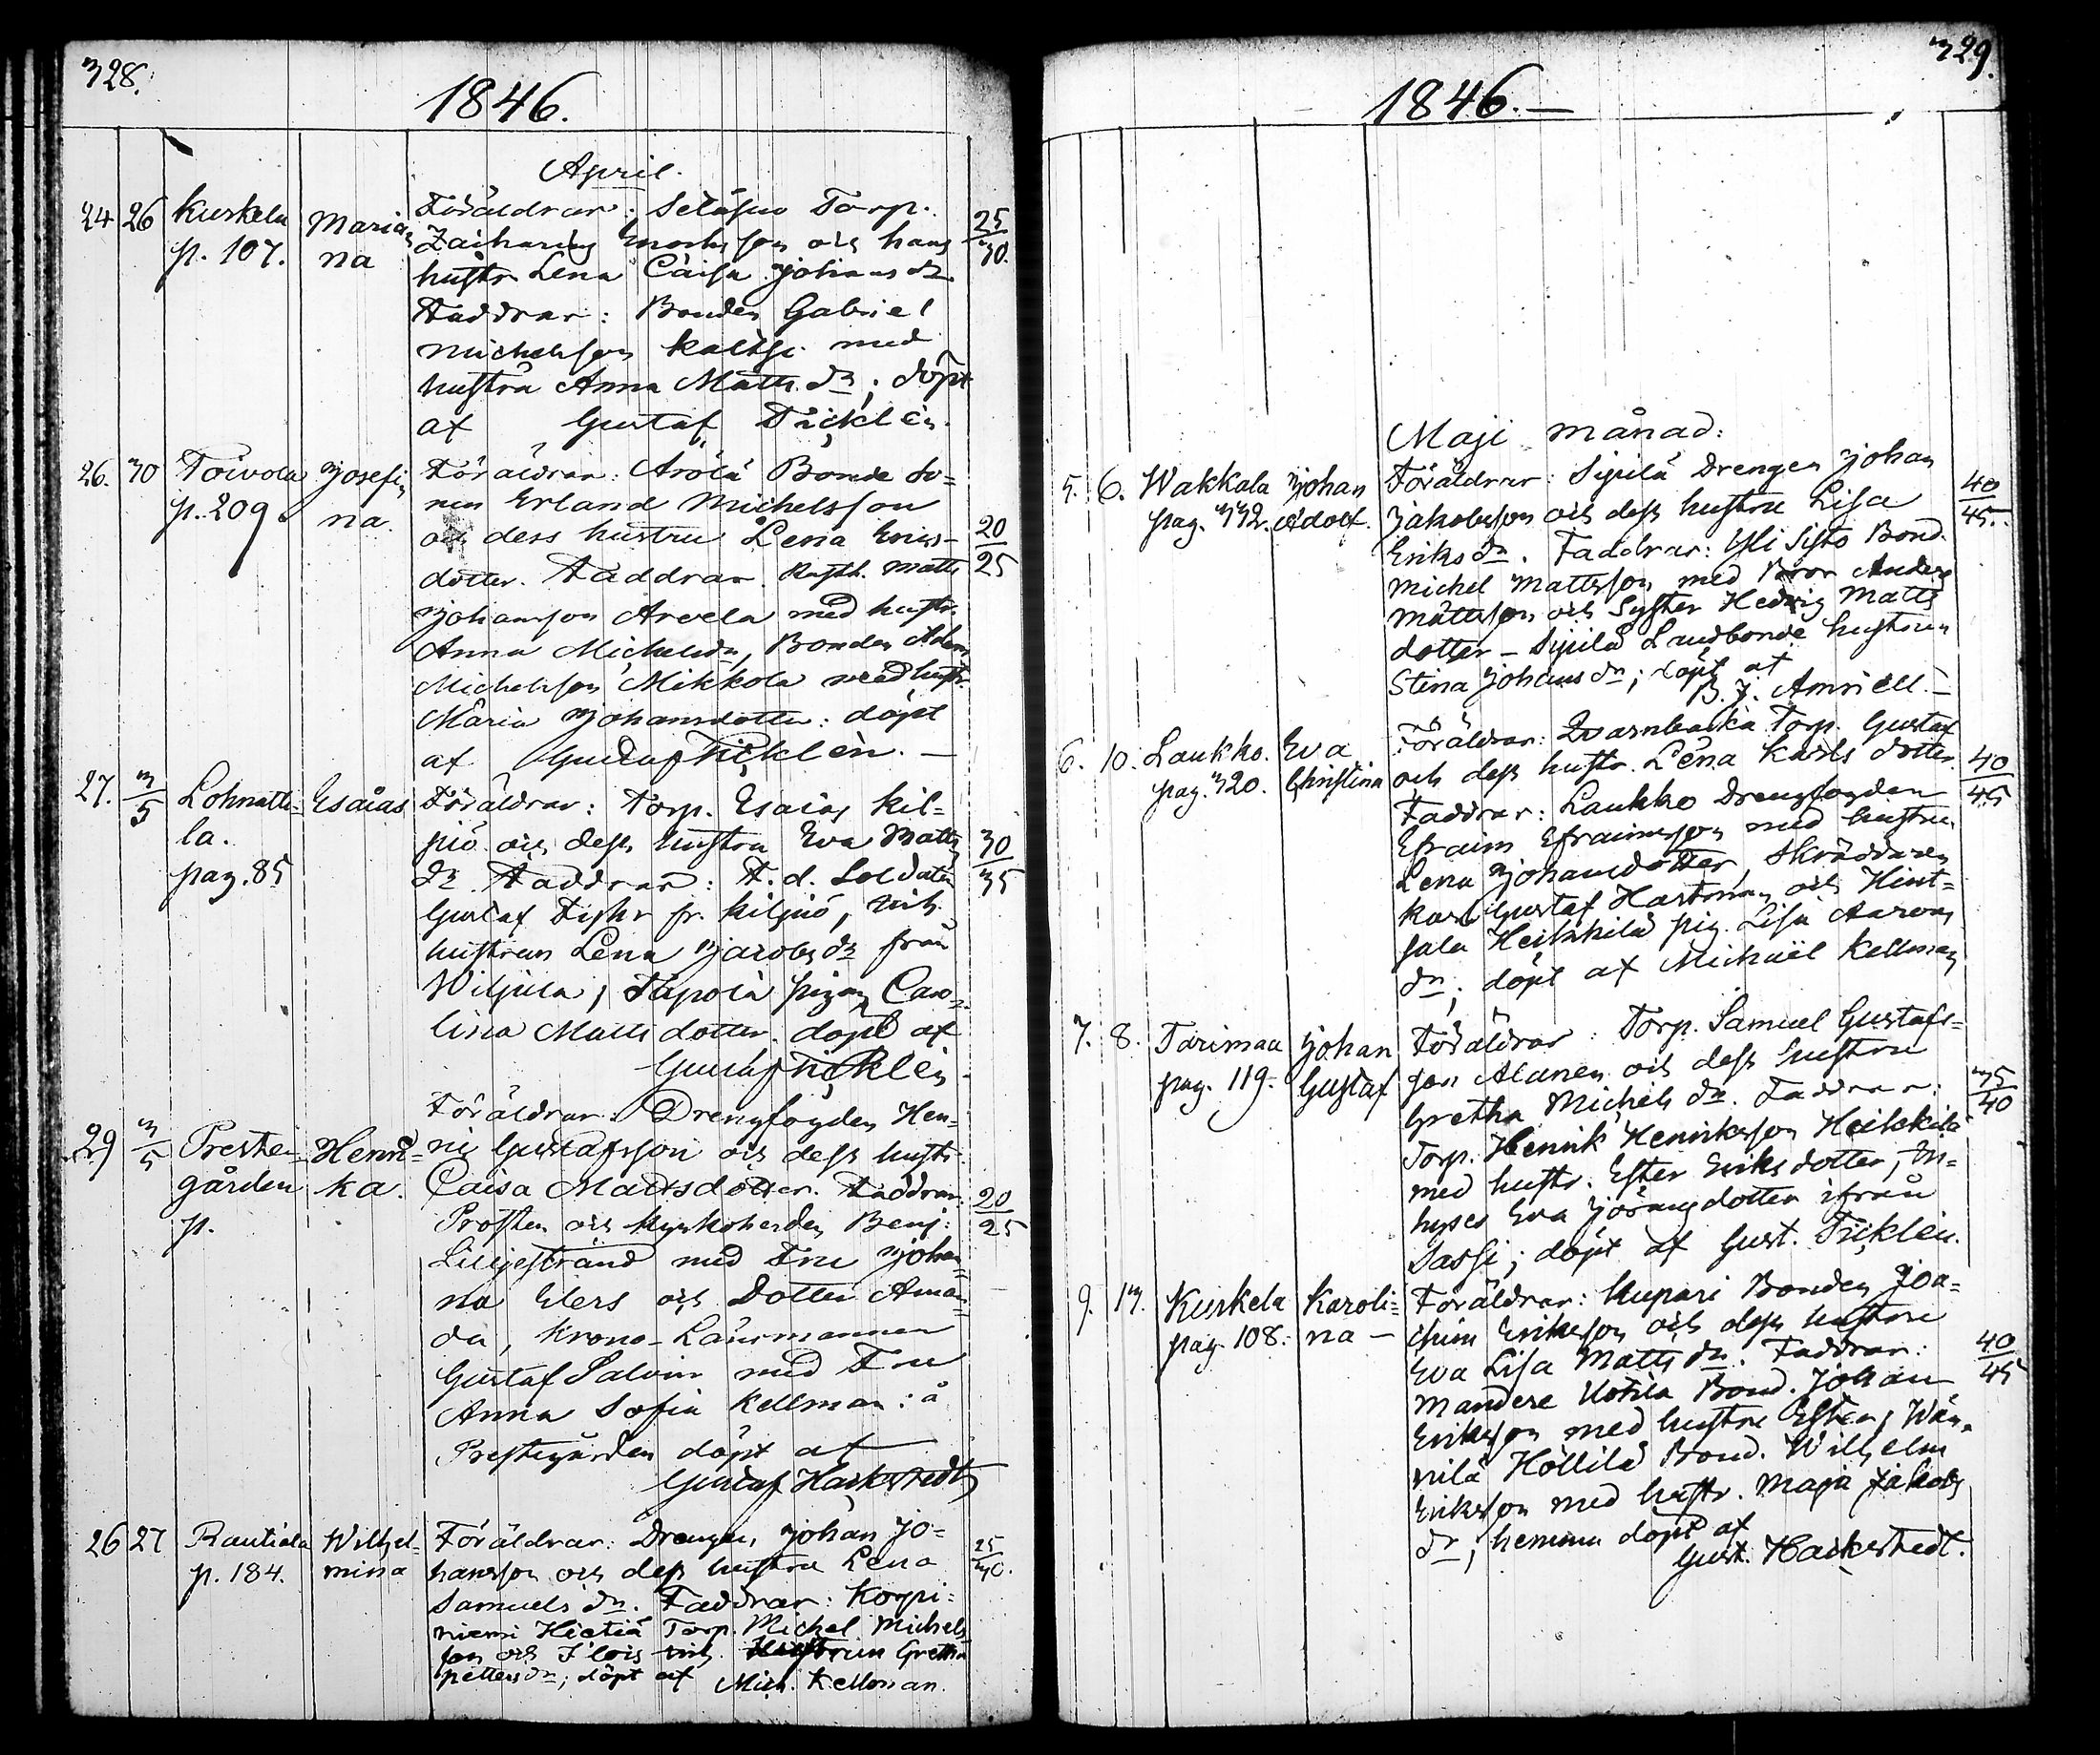 328.
1846.
April.
24 26 Kuskela Maria
p. 107. na
Föräldrar: Torp. 25
Zacharias Enochsson och hans 30.
hustr. Lena Caisa Johansdr
Faddrar: Bonden Gabriel
Michelsson med
hustru Anna Mattsdr; döpt
af Gustaf Ticklén.
26. 30 Toivola Josefi
p. 209 na.
Föräldrar: Arola Bonde So=
nen Erland Michelsson
och dess hustru Lena Erics- 20
dotter. Faddrar. Rusth. Matts 25
Johansson Arvela med hustr.
Anna Michelsdr, Bonden Adam
Michelsson Mikkola med hustr.
Maria Johansdotter: döpt
af Gustaf Ticklén. —
27. 3/5 Lohnatti= Esaias
la.
pag. 85
Föräldrar: Torp. Esaias Kil=
piö och dess hustru Eva Matts 30
dr. Faddrar: F. d. Soldaten 35
Gustaf fr. Kilpiö, Inh.
hustrun Lena Jacobsdr från
Wilpula, Tapola pigan Caro=
lina Mattsdotter. döpt af
Gustaf Ticklén.
29 3/5 Preste= Henri=
gården ka.
p.
Föräldrar: Drengfogden Hen=
ric Gustafsson och dess hustr.
Caisa Mattsdotter. Faddrar: 20
Prosten och Kyrkoherden Benj: 25
Liljestrand med Fru Johan=
na Elers och Dotter Aman=
da, Krono-Länsmannen
Gustaf Salvin med Fru
Anna Sofia Kellman: å
Prestegården döpt af
Gustaf Hackstedt
26 27 Rautiala Wilhel=
p. 184. mina
Föräldrar: Drengen Johan Jo= 25
hansson och dess hustru Lena 30.
Samuelsdr. Faddrar: Korpi=
niemi Hietiä Torp. Michel Michels
son och Flois inh. Hustrun Gretha
pettersdr; döpt af Mich. Kellman.
329.
1846. —
Maji månad:
5. 6. Wakkala Johan
pag. 332. Adolf.
Föräldrar: Sipilä Drengen Johan 40
Jakobsson och dess hustru Lisa 45.
Eriksdr. Faddrar: Yli Sisto Bond.
Michel Mattsson med Bror Anders
Mattsson och Syster Hedvig Matts
dotter – Sipilä Landbonde hustrun
Stina Johansdr; döpt af
B. J. Amnell. —
6. 10. Laukko. Eva
pag. 320. Christina
Föräldrar: Qvarnbacka Torp. Gustaf
och dess hustr. Lena Karlsdotter. 40
Faddrar: Laukko Drengfogden 45
Efraim Efraimsson med hustru
Lena Johansdotter, Skräddaren
Karl Gustaf Hartman och Hint=
sala Heikkilä pig. Lisa Aarons
dr; döpt af Michaël Kellman
7. 8. Tarimaa Johan
pag. 119. Gustaf
Föräldrar: Torp. Samuel Gustafs=
son Alanen och dess hustru
Gretha Michelsdr. Faddrar: 35
Torp. Henrik Henriksson Heikkilä 40
med hustr. Ester Eriksdotter, In=
hyses Eva Jöransdotter ifrån
Sassi; döpt af Gust. Ticklén.
9. 13. Kuskela Karoli=
pag. 108. na —
Föräldrar: Kupari Bonden Joa=
chim Eriksson och dess hustru
Eva Lisa Mattsdr. Faddrar: 40
Mandere Uotila Bond. Johan 45
Eriksson med hustru Ester, Wän=
nilä Höllilä Bond. Wilhelm
Eriksson med hustr. Maja Jakobs
dr; hemma döpt af
Gust. Hackstedt.